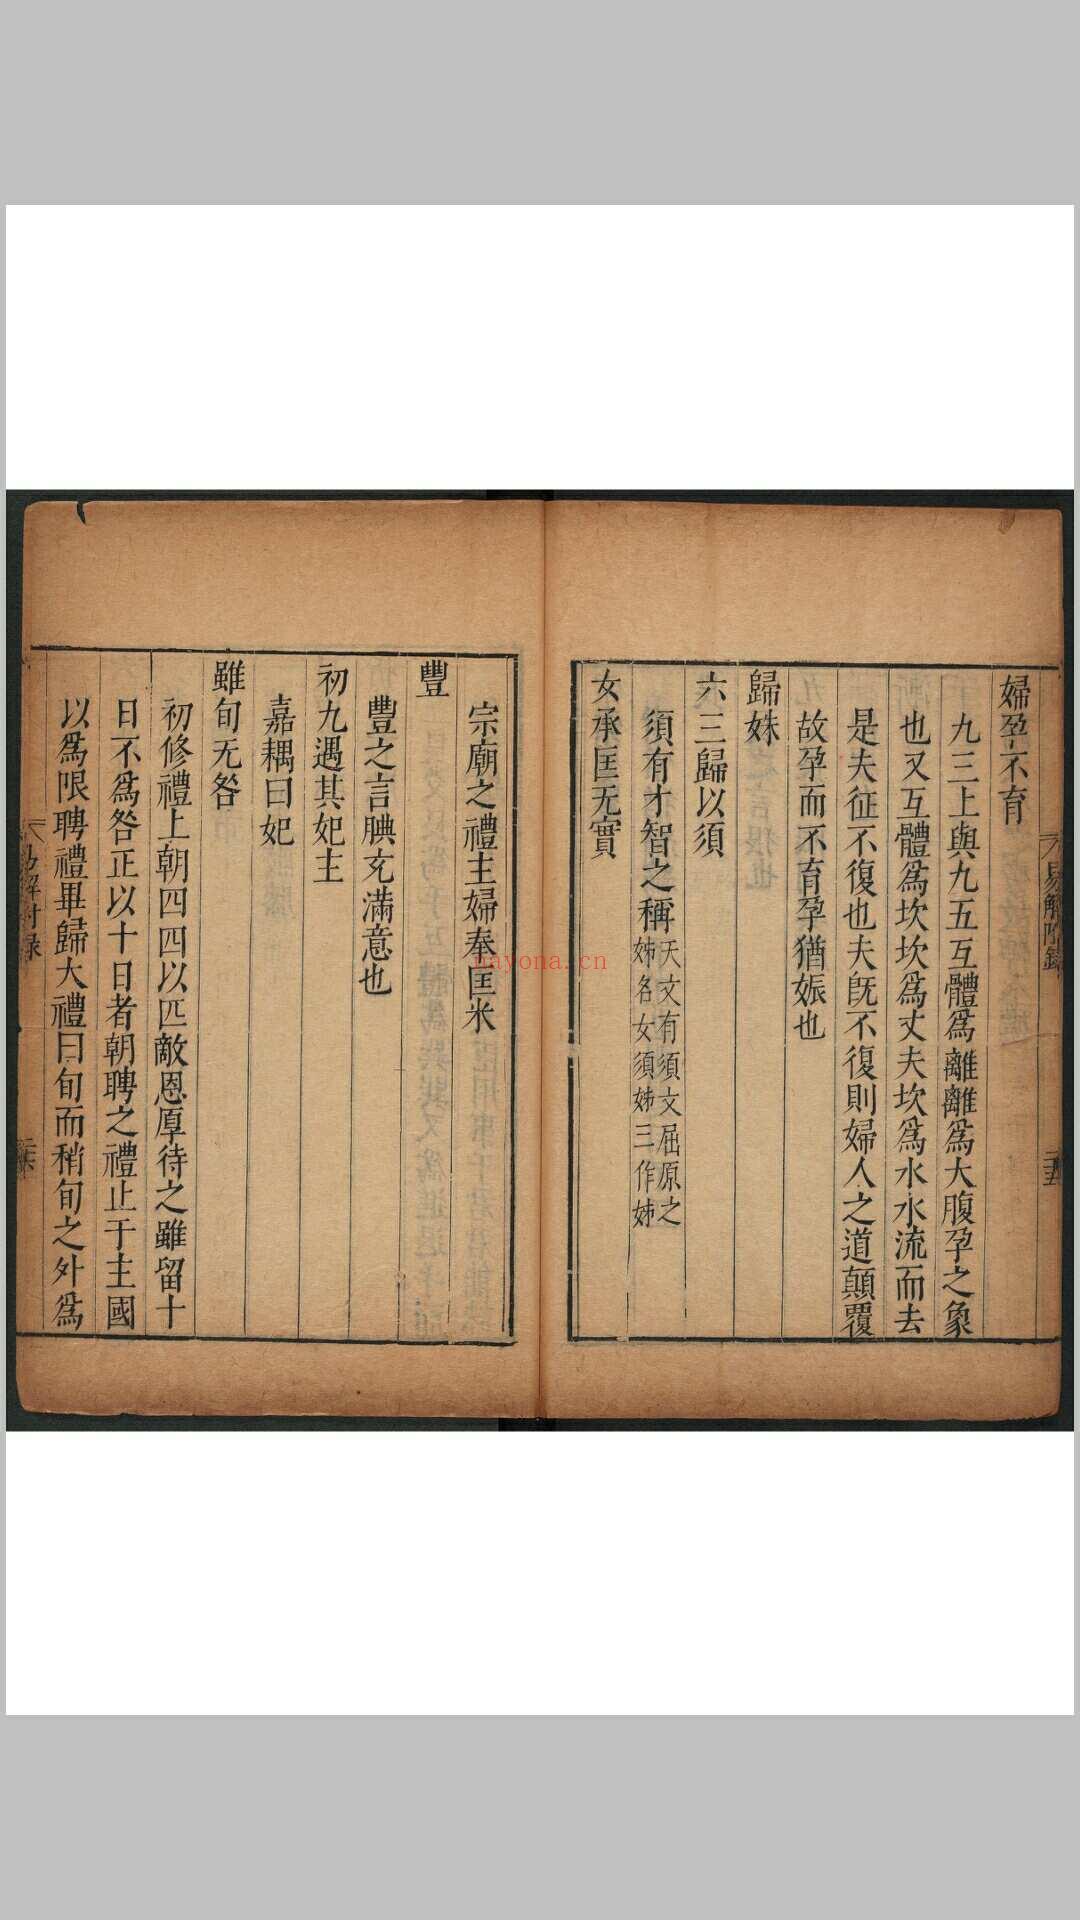 婦孕不育
九三上與九五互體爲離離爲大腹孕之象
也又互體爲坎坎爲丈夫坎爲水水流而去
是夫征不復也夫旣不復則婦人之道顛覆
故孕而不育孕猶娠也
歸妹
六三歸以須
須有才智之稱天文有須文屈原之
姊名女須姊三作姊
女承匡无實
易解附錄
二五
宗廟之禮主婦奉匡米
豐
豐之言腆充滿意也
初九遇其妃主
嘉耦曰妃
雖旬无咎
初修禮上朝四四以匹敵恩厚待之雖留十
日不爲咎正以十日者朝聘之禮止于主國
以爲限聘禮畢歸大禮曰旬而稍旬之外爲
易解附錄
二六
nayona.cn